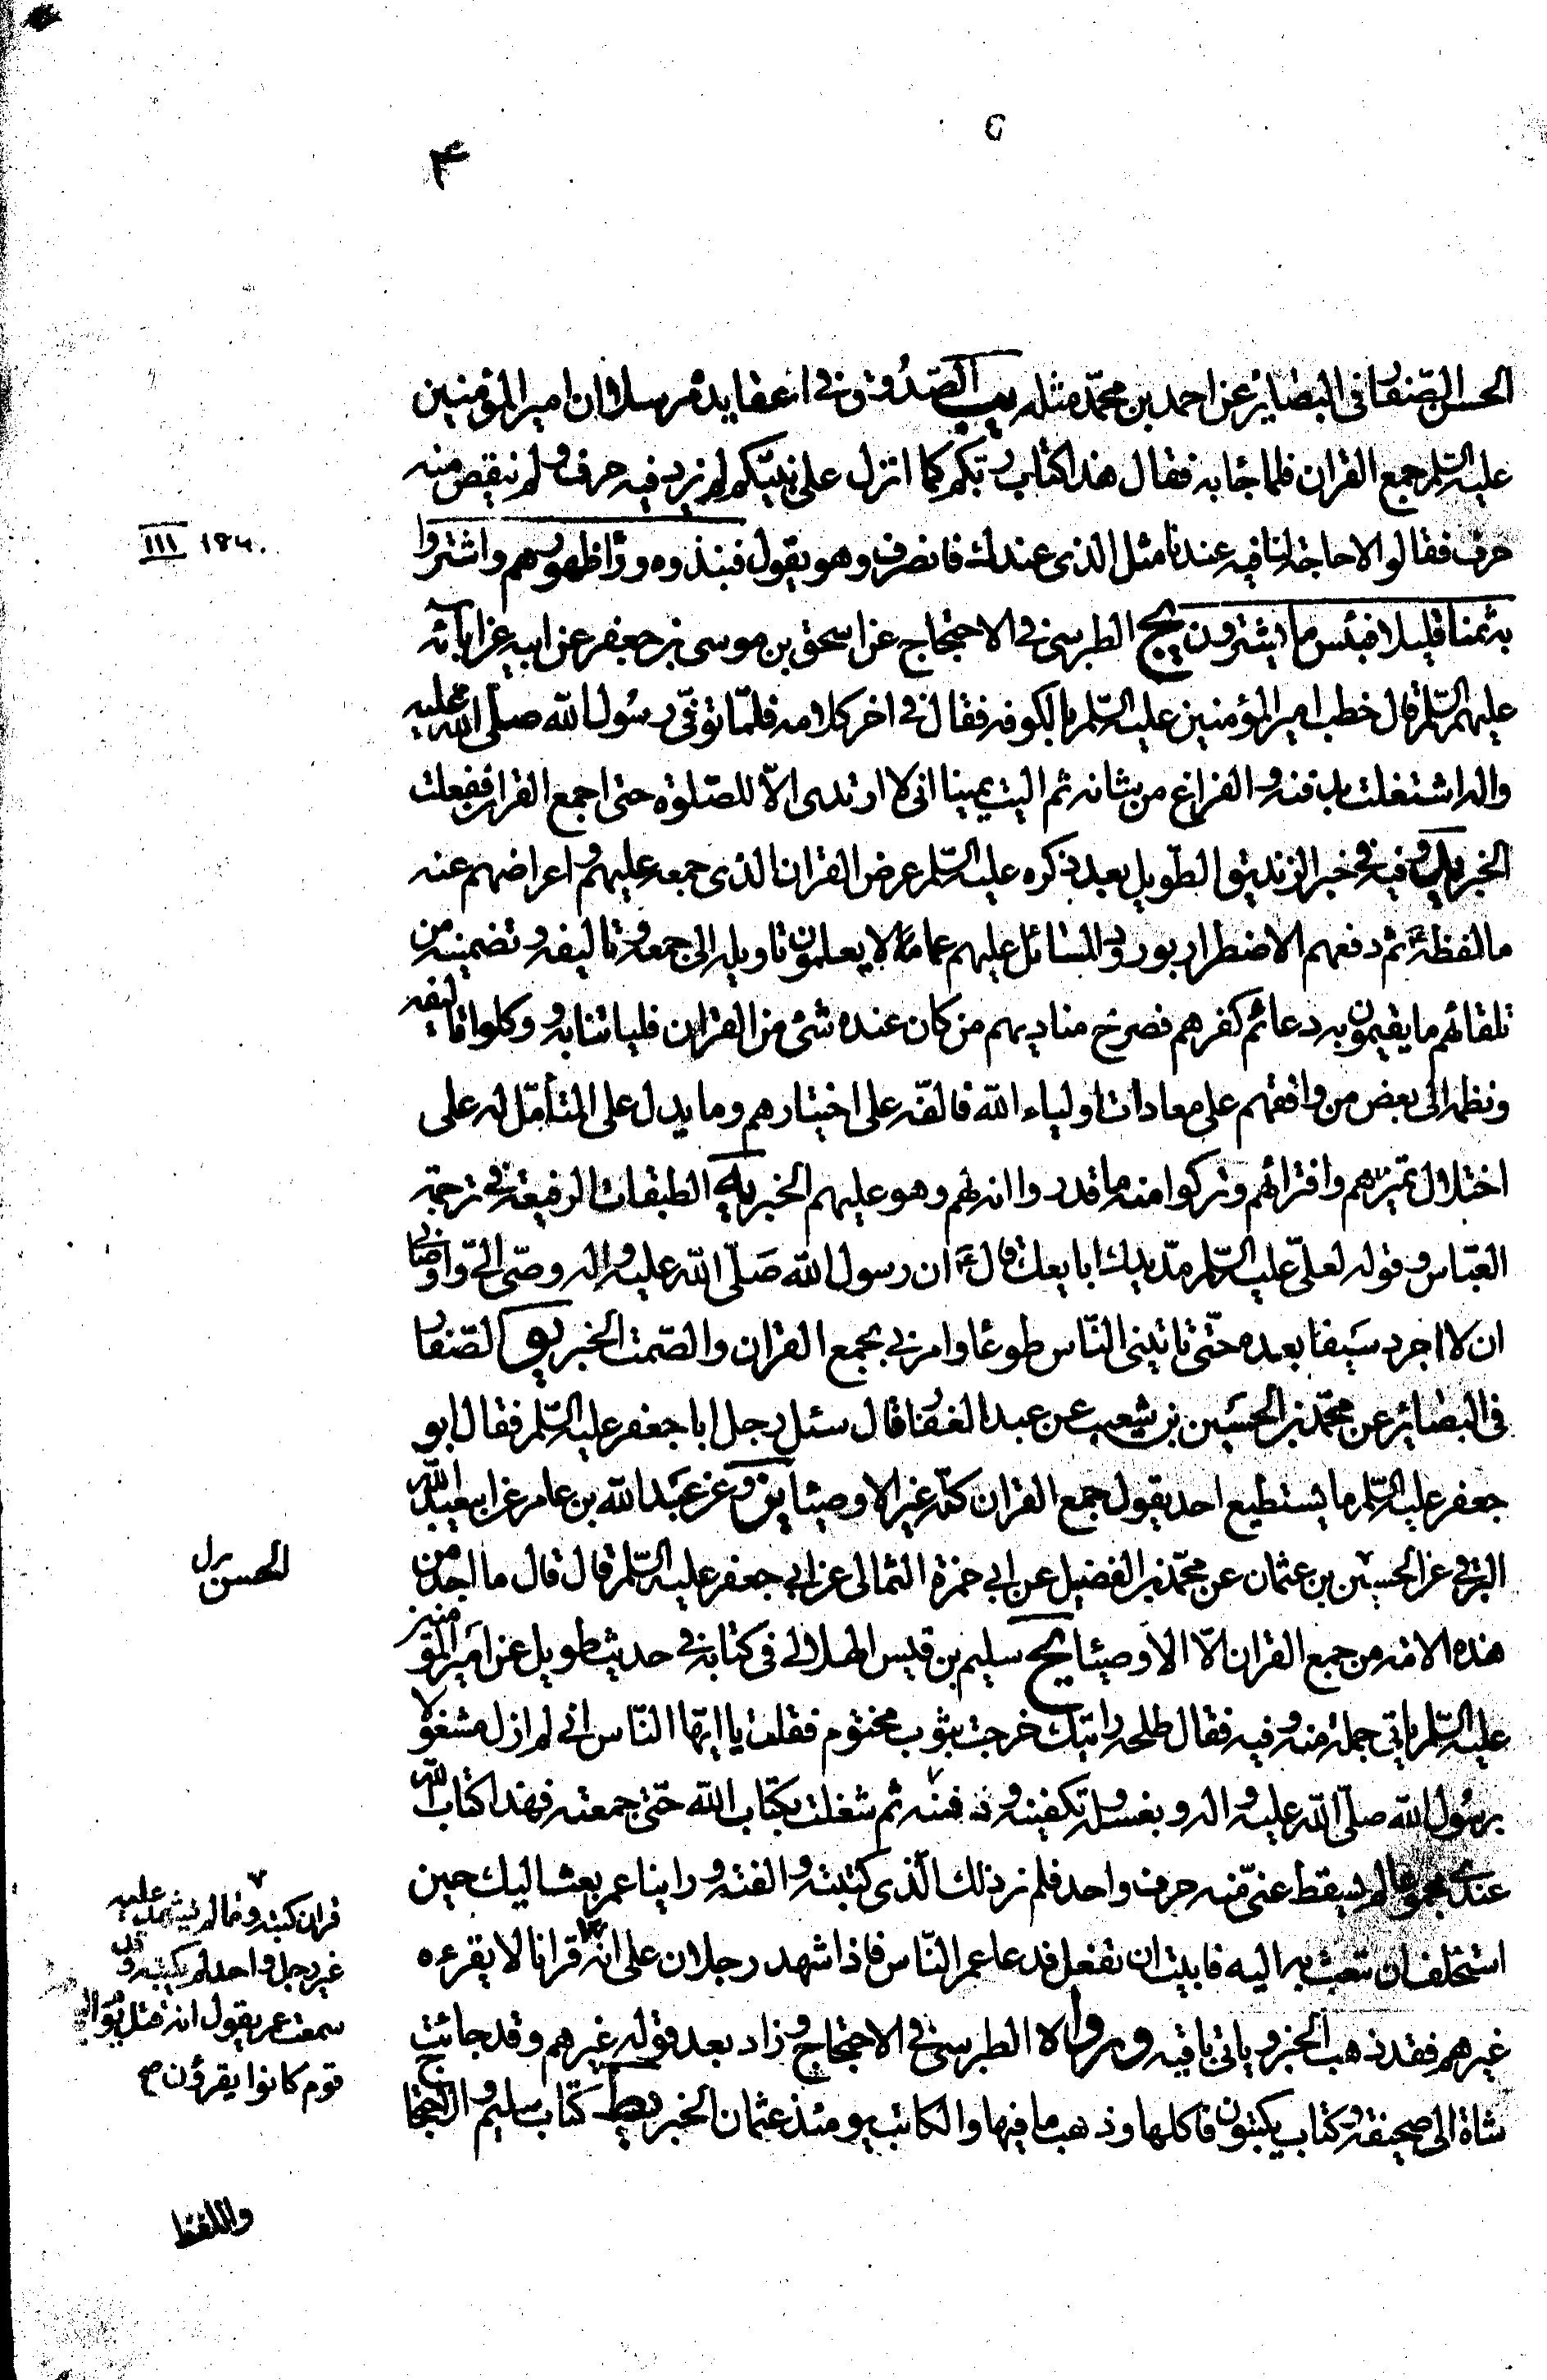 ۴
الحسن الصّفار فى البصائر عن احمد بن محمّد مثله يب الصّدوق فى عقايده مرسلا ان امير المؤمنين
عليه السّلم جمع القران فلما جاء به فقال هذا كتاب ربّكم كما انزل على نبيّكم لم يزد فيه حرف و لم ينقص منه
حرف فقالوا لا حاجة لنا فيه عندنا مثل الذى عندك فانصرف وهو يقول فنبذوه وراء ظهورهم واشتروا
به ثمنا قليلا فبئس ما يشترون يج الطبرسى فى الاحتجاج عن اسحق بن موسى بن جعفر عن ابيه عن ابائه
عليهم السّلم قال خطب امير المؤمنين عليه السّلم بالكوفه فقال فى اخر كلامه فلمّا توفّى رسول الله صلّى الله عليه
واله اشتغلت بدفنه و الفراغ من شانه ثم اليت يمينا انى لا ارتدى الّا للصّلوة حتى اجمع القران ففعلت
الخبر يد وفيه فى خبر الزنديق الطّويل بعد ذكره عليه السّلم عرض القران الذى جمعه عليهم و اعراضهم عنه
ما لفظه ثم دفعهم الاضطرار بورود المسائل عليهم عما لا يعلمون تاويله الى جمعه و تاليفه و تضمينه من
تلقائهم ما يقيمون به دعائم كفرهم فصرخ مناديهم من كان عنده شئ من القران فلياتنا به و وكلوا تاليفه
ونظمه الى بعض من وافقهم على معادات اولياء الله فالفّه على اختيارهم وما يدل على المتأمّل له على
اختلال تميزهم وافترائهم وتركوا منه ما قدروا انه لهم وهو عليهم الخبر يه الطبقات الرفيعة فى ترجمة
العبّاس و قوله لعلىّ عليه السّلم مدّ يدك ابايعك قال ان رسول الله صَلّى الله عليه و اله وصّى الىّ واوصانى
ان لا اجرد سيفا بعده حتّى تاتينى النّاس طوعًا وامرنى بجمع القران والصّمت الخبر يو الصّفار
فى البصائر عن محمّد بن الحسَين بن شعيب عن عبد الغفار قال سئل رجل ابا جعفر عليه السّلم فقال ابو
جعفر عليه السّلم ما يستطيع احد يقول جمع القران كلّه غير الاوصياء يز وعن عبد الله بن عامر عن ابى عبد الله
البرقى عن الحسين بن عثمان عن محمّد بن الفضيل عن ابى حمزة الثمالى عن ابى جعفر عليه السّلم قال قال ما اجد من
هذه الامّه من جمع القران الّا الاوصياء يح سليم بن قيس الهلالى فى كتابه فى حديث طويل عن امير المؤمنين
عليه السّلم ياتى جملة منه و فيه فقال طلحه رايتك خرجت بثوب مختوم فقلت يا ايّها النّاس انى لم ازل مشغولا
برسول الله صلّى الله عليه و اله و بغسله و تكفينه و دفنه ثم شغلت بكتاب الله حتّى جمعته فهذا كتاب الله
عندى مجموعا لم يسقط عنّى منه حرف واحد فلم نر ذلك الّذى كتبته و الفته و راينا عمر بعث اليك حين
استخلف ان تبعث به اليه فابيت ان تفعل فدعا عمر النّاس فاذا شهد رجلان على انّه قرانا لا يقرءه
غيرهم فقد ذهب الخبر و ياتى باقيه ورواه الطبرسى فى الاحتجاج و زاد بعد قوله غيرهم و قد جائت
شاة الى صحيفة و كتاب يكتبون فاكلها وذهب ما فيها والكاتب يومئذ عثمان الخبر يط كتاب سليم و الاحتجاج
III 184.
الحسن بدل
قران كتبه و ما لم يشهد عليه
غير رجل واحد لم يكتبه و قال
سمعت عمر يقول انه قتل يوم اليمامة
قوم كانوا يقرؤن
واللفظ